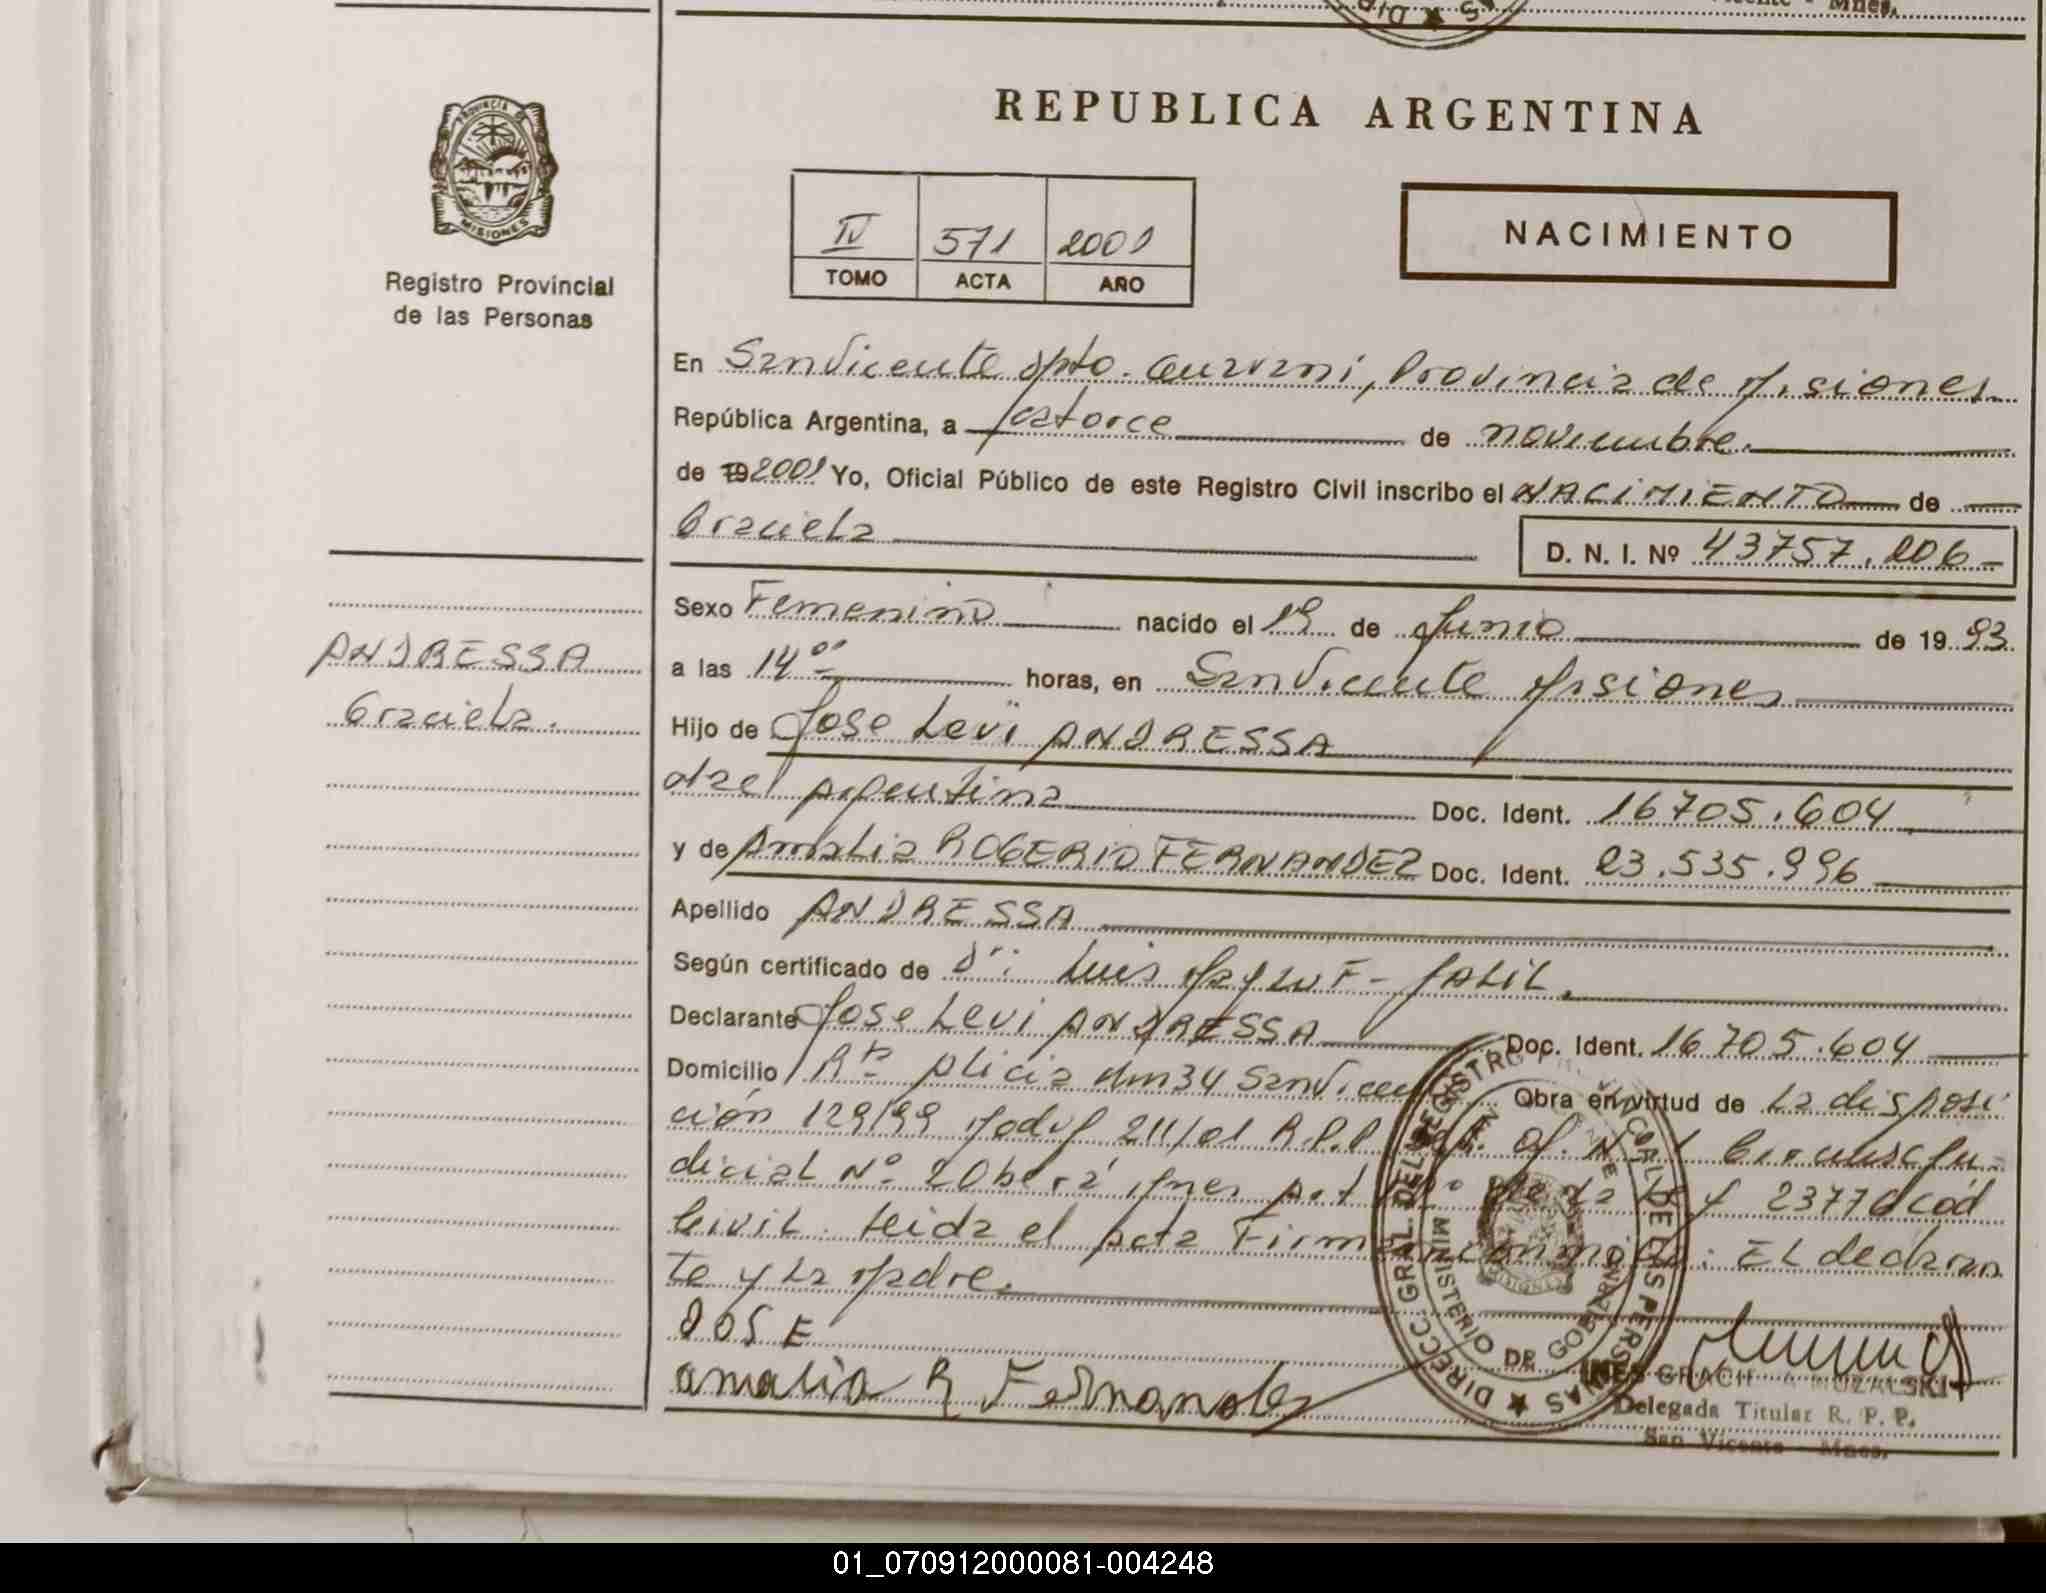 Mnes.
REPUBLICA ARGENTINA
PROVINCIA DE
MISIONES
Registro Provincial
de las Personas
IV 571 2001
TOMO ACTA AÑO
NACIMIENTO
En San Vicente Dpto. Guarani, Provincia de Misiones
República Argentina, a catorce de noviembre.
de 19 2001 Yo, Oficial Público de este Registro Civil inscribo el NACIMIENTO de
Graciela
D. N. I. Nº 43757.206
Sexo Femenino nacido el 19 de Junio de 19 93
a las 14 00 horas, en San Vicente Misiones
Hijo de Jose Levi ANDRESSA
Argentina Doc. Ident. 16705.604
y de Amalia ROGERIO FERNANDEZ Doc. Ident. 23.535.996
Apellido ANDRESSA
Según certificado de Dr: Luis
Declarante Jose Levi ANDRESSA Doc. Ident. 16705.604
Domicilio Rta Alicia km 34 San Vicen Obra en virtud de la disposi
ción 129/99 Modif 211/01 R.P.P. Circunsc Ju
dicial Nº 2 Oberá Mnes Art de la Ley 23776 Cód
Civil. Leida el Acta Firman conmigo: El declaran
te y la Madre.
JOSE
amalia R Fernandez
ANDRESSA
Graciela.
DIRECC. GRAL. DEL REGISTRO PROVINCIAL DE LAS PERSONAS
MINISTERIO DE GOBIERNO
SAN VICENTE
MISIONES
INES GRACIELA
Delegada Titular R. P. P.
San Vicente - Mnes.
01_070912000081-004248